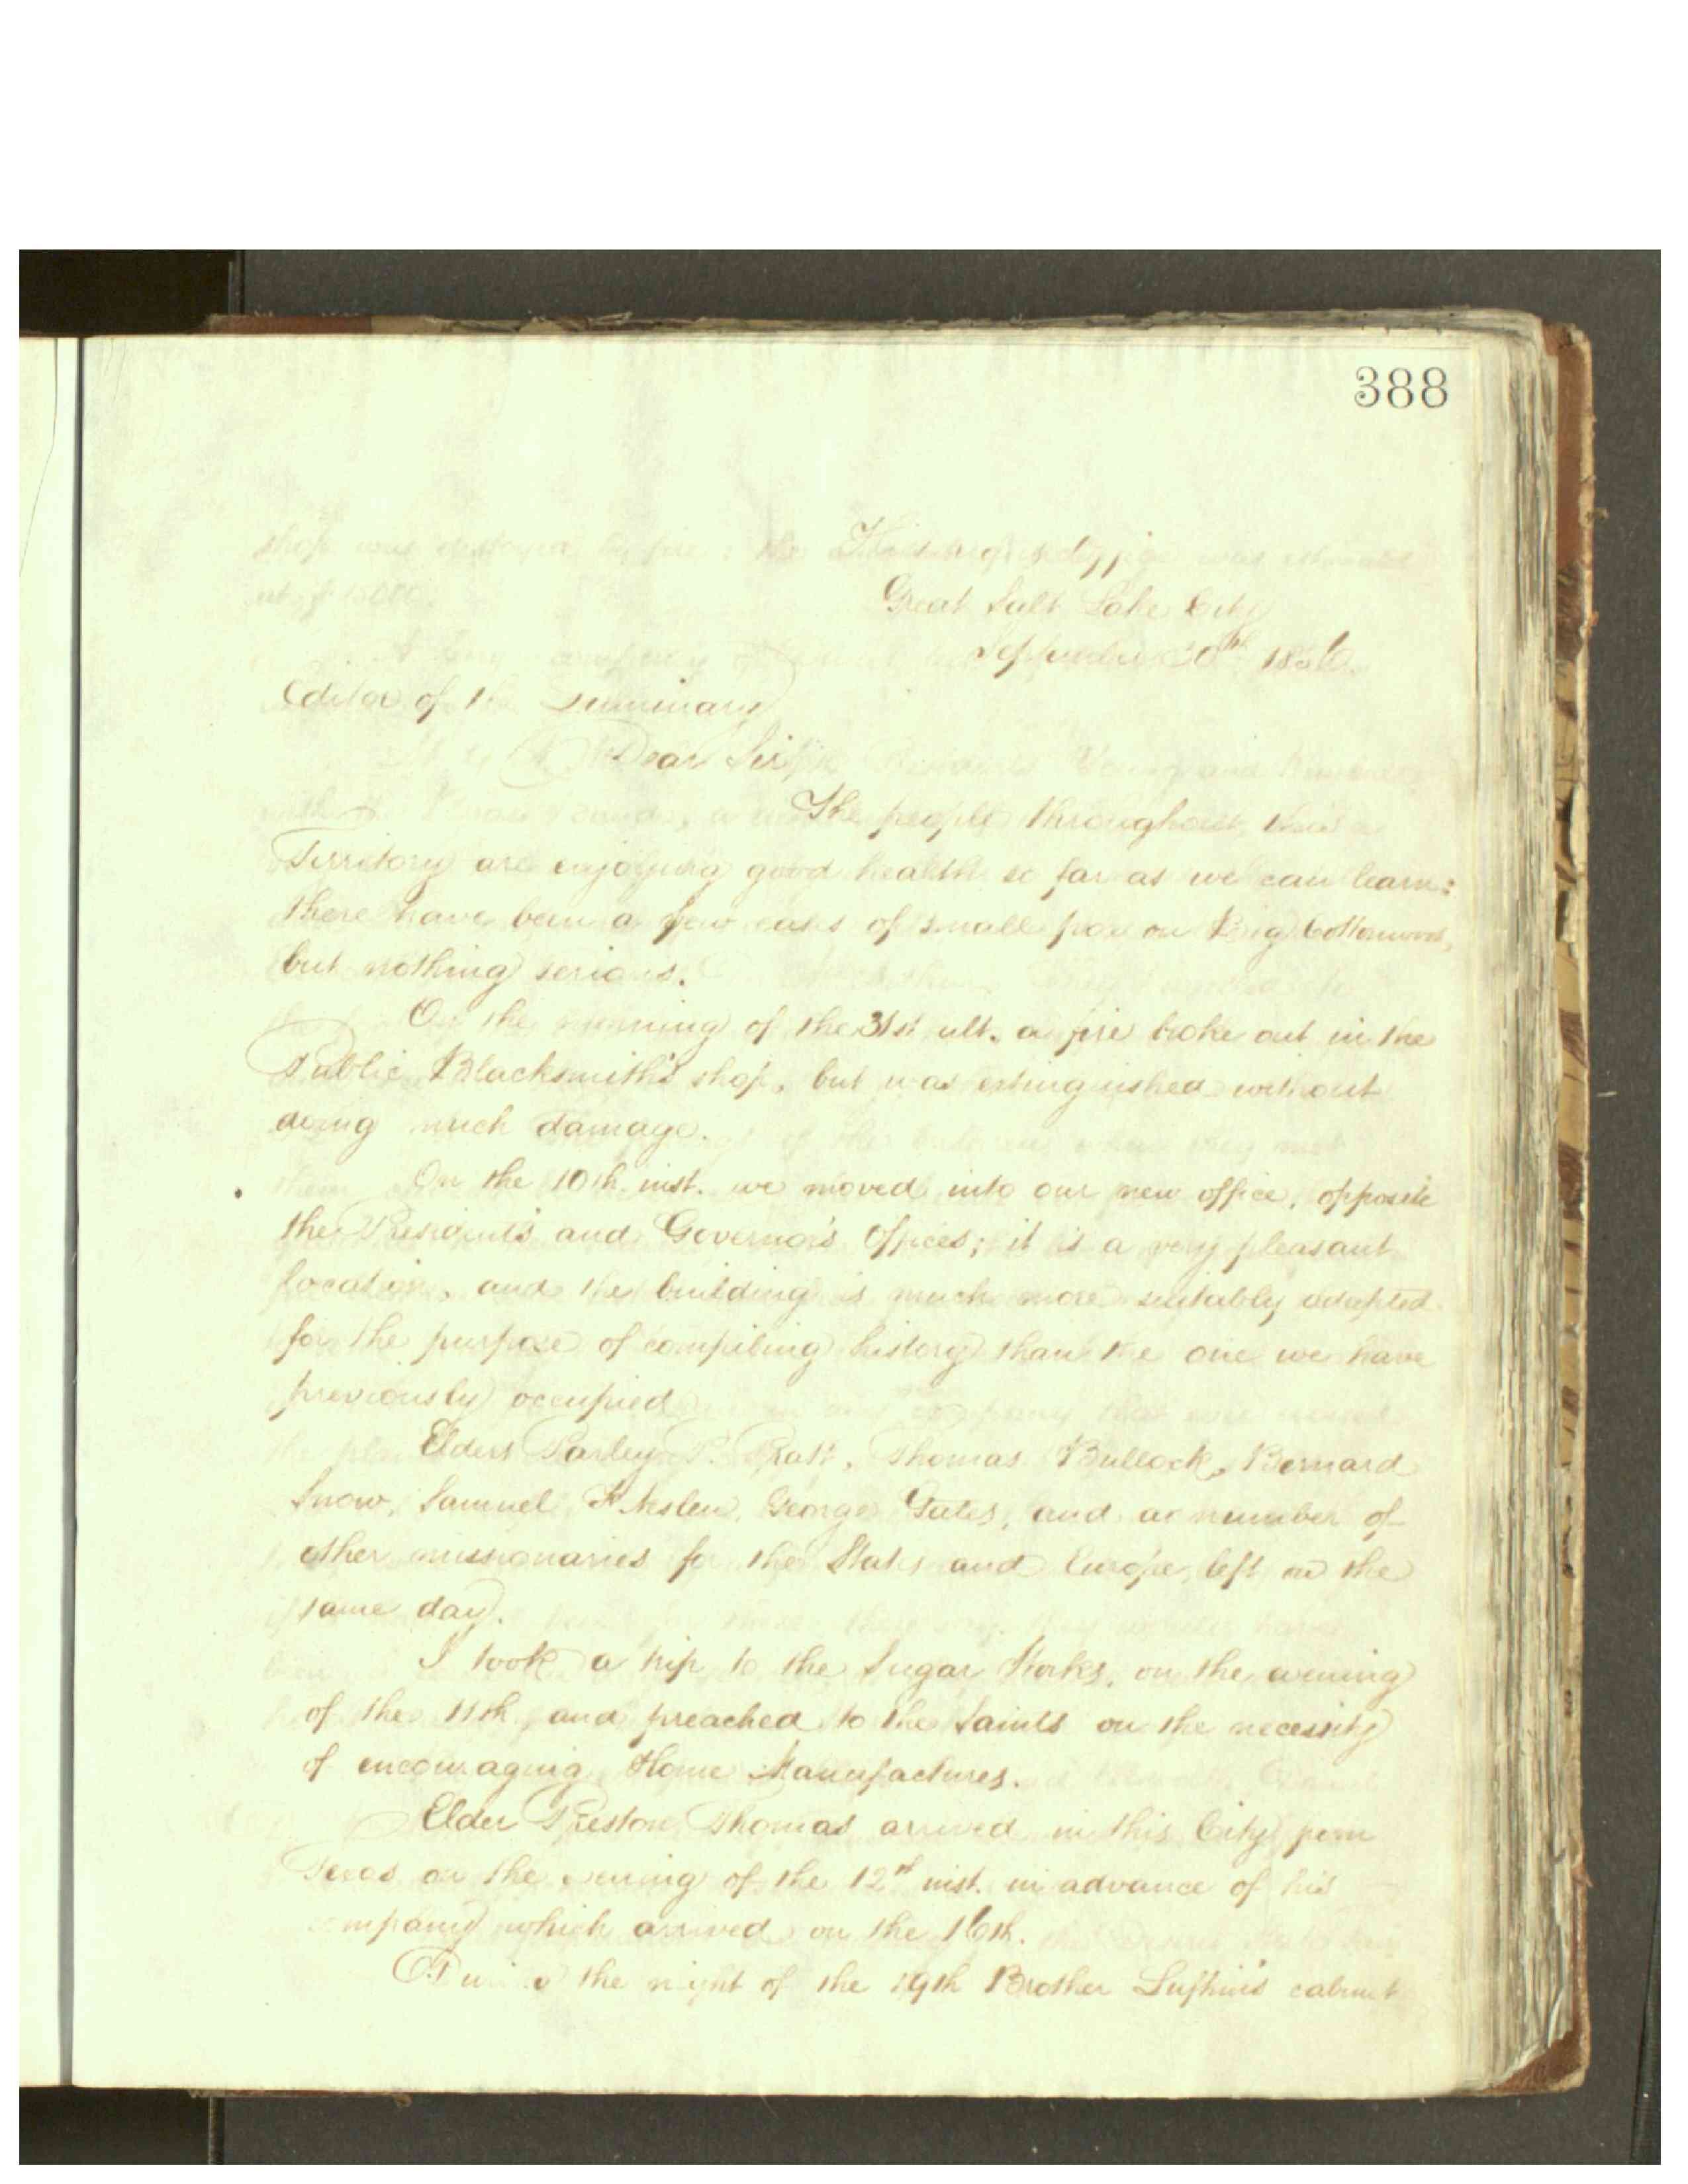 388
Historian's Office
Great Salt Lake City
September 30th 1856.
Editor of the Luminary
Dear Sir
The people throughout the
Territory are enjoying good health so far as we can learn:
there have been a few cases of small pox on Big Cottonwood,
but nothing serious.
On the morning of the 31st ult. a fire broke out in the
Public Blacksmith's shop, but was extinguished without
doing much damage.
On the 10th inst. we moved into our new office, opposite
the President's and Governor's Offices; it is a very pleasant
location, and the building is much more suitably adapted
for the purpose of compiling history than the one we have
previously occupied
Elders Parley P. Pratt, Thomas Bullock, Bernard
Snow, Samuel George Gates, and a number of
other missionaries for the States and Europe, left on the
same day.
I took a trip to the Sugar Works, on the evening
of the 11th, and preached to the Saints on the necessity
of encouraging Home Manufactures.
Elder Preston Thomas arrived in this City from
Texas on the evening of the 12th inst. in advance of his
company which arrived on the 16th.
During the night of the 19th Brother Lufkin's cabinet